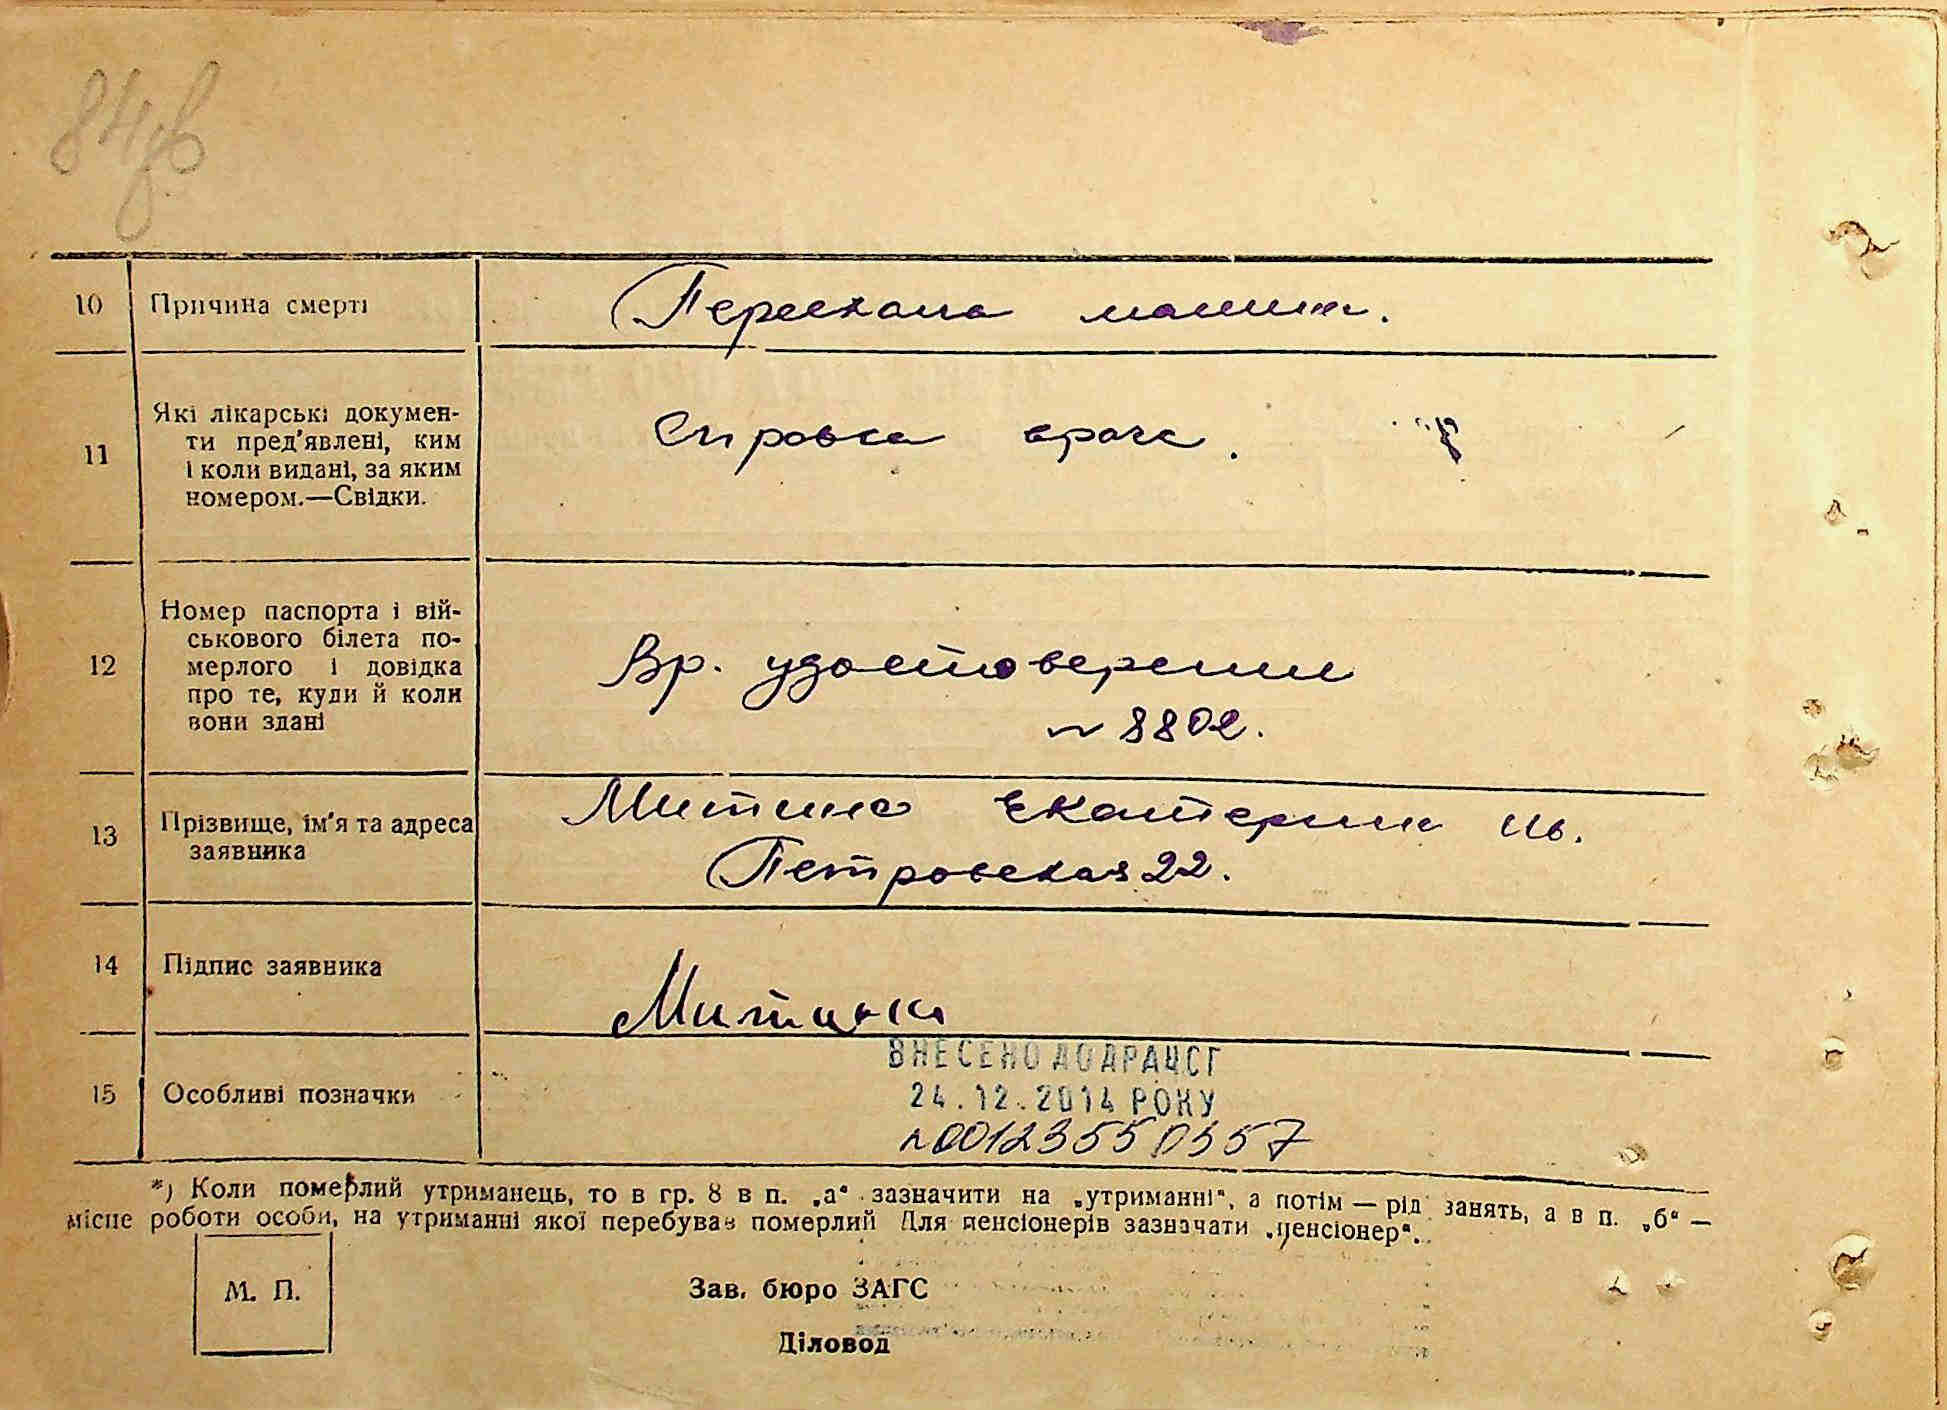 84
10 Причина смерті Переехала машина.
11 Які лікарські докумен-
ти пред'явлені, ким
і коли видані, за яким
номером.—Свідки.
Справка врача.
12 Номер паспорта і вій-
ськового білета по-
мерлого і довідка
про те, куди й коли
вони здані
Вр. удостоверение
№ 8802.
13 Прізвище, ім'я та адреса
заявника
Митина Екатерина Ив.
Петровская 22.
14 Підпис заявника Митина
15 Особливі позначки
ВНЕСЕНО ДО ДРАЦСГ
24.12.2014 РОКУ
№00123550357
*) Коли померлий утриманець, то в гр. 8 в п. „а“ зазначити на „утриманні“, а потім — рід занять, а в п. „б“ —
місце роботи особи, на утриманні якої перебував померлий Для пенсіонерів зазначати „пенсіонер“.
М. П.
Зав. бюро ЗАГС
Діловод